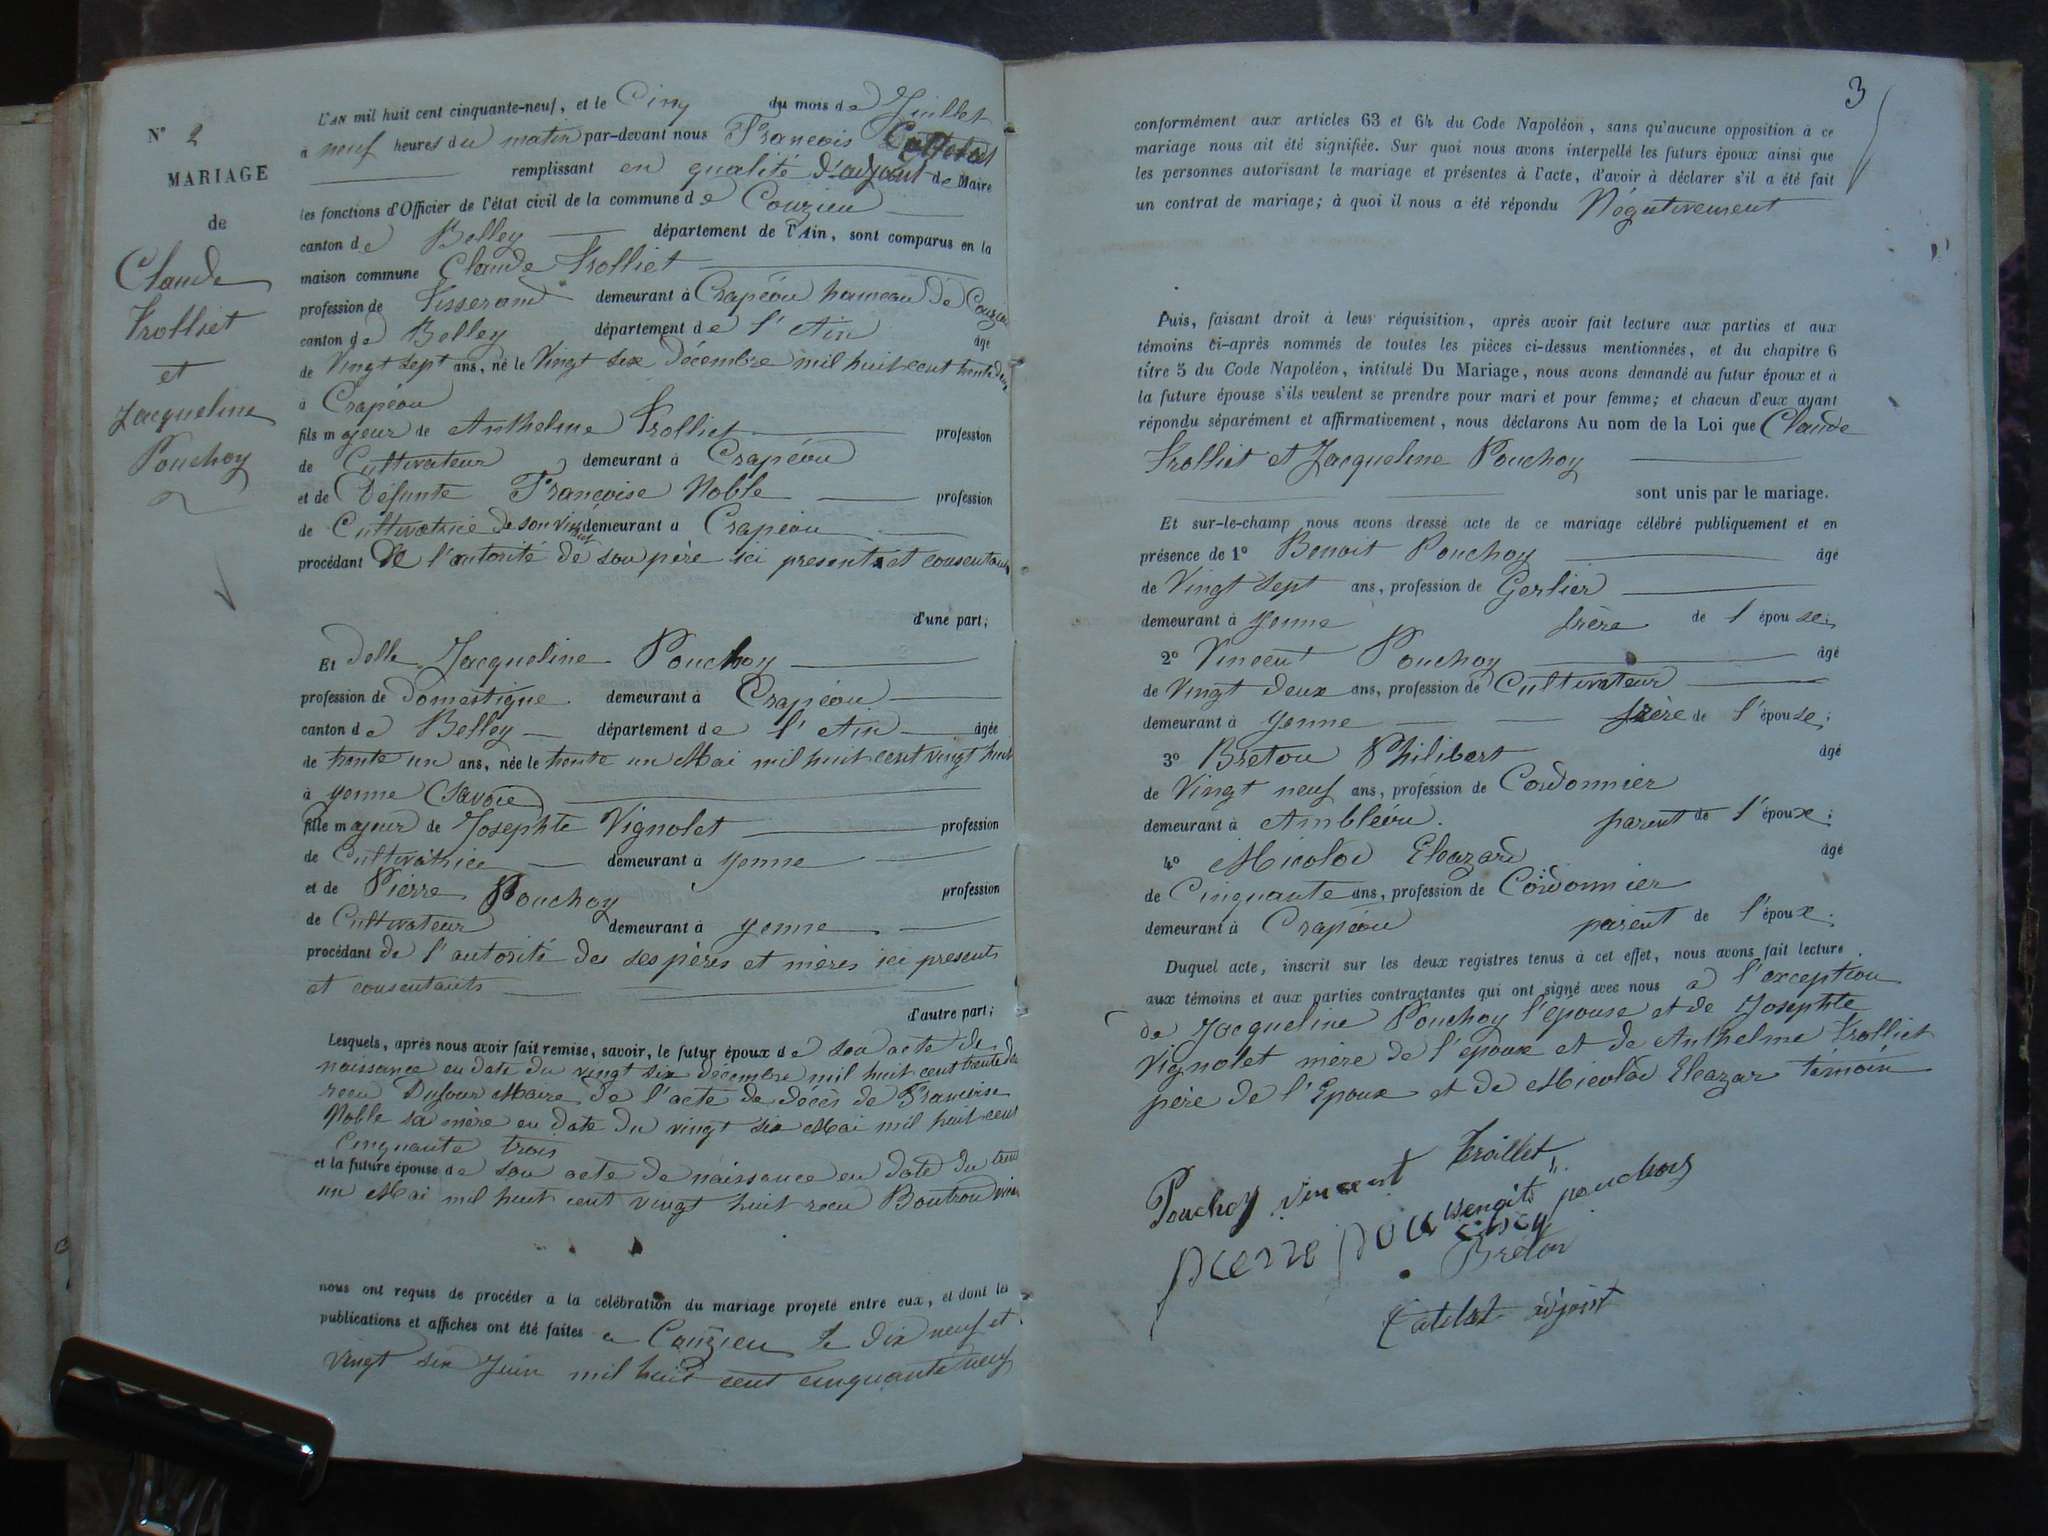 N° 2
MARIAGE
de
Claude
Trolliet
et
Jacqueline
Pouchoy
L'AN mil huit cent cinquante-neuf, et le Cinq du mois de Juillet
a neuf heures du matin par-devant nous François Catelat
remplissant en qualité d'adjoint de Maire
les fonctions d'Officier de l'état civil de la commune de Couzieu
canton de Belley département de l'Ain, sont comparus en la
maison commune Claude Trolliet
profession de Tisserand demeurant à Crapéou hameau de Couzieu
canton de Belley département de l'Ain âgé
de Vingt sept ans, né le Vingt six décembre mil huit cent trente deux
à Crapéou
fils majeur de Anthelme Trolliet profession
de Cultivateur demeurant à Crapéou
et de Défunte Françoise Noble profession
de Cultivatrice de son vivant demeurant a Crapéou
procédant de l'autorité de son père ici present et consentant
d'une part;
Et delle Jacqueline Pouchoy
profession de domestique demeurant à Crapéou
canton de Belley département de l'Ain âgée
de trente un ans, née le trente un Mai mil huit cent vingt huit
à yenne (Savoie)
fille majeur de Josephte Vignolet profession
de Cultivatrice demeurant à yenne
et de Pierre Pouchoy profession
de Cultivateur demeurant à yenne
procédant de l'autorité des ses pères et mères ici presents
et consentants
d'autre part;
Lesquels, après nous avoir fait remise, savoir, le futur époux de son acte de
naissance en date du vingt six décembre mil huit cent trente deux
recu Dufour Maire de l'acte de décès de Francoise
Noble sa mère en date du vingt six Mai mil huit cent
Cinquante trois
et la future épouse de son acte de naissance en date du trente
un Mai mil huit cent vingt huit recu Boutron
nous ont requis de procéder à la célébration du mariage projeté entre eux, et dont les
publications et affiches ont été faites a Couzieu le dix neuf et
vingt six Juin mil huit cent cinquante neuf
3
conformément aux articles 63 et 64 du Code Napoléon, sans qu'aucune opposition à ce
mariage nous ait été signifiée. Sur quoi nous avons interpellé les futurs époux ainsi que
les personnes autorisant le mariage et présentes à l'acte, d'avoir à déclarer s'il a été fait
un contrat de mariage; à quoi il nous a été répondu Négativement
Puis, faisant droit à leur réquisition, après avoir fait lecture aux parties et aux
témoins ci-après nommés de toutes les pièces ci-dessus mentionnées, et du chapitre 6
titre 5 du Code Napoléon, intitulé Du Mariage, nous avons demandé au futur époux et à
la future épouse s'ils veulent se prendre pour mari et pour femme; et chacun d'eux ayant
répondu séparément et affirmativement, nous déclarons Au nom de la Loi que Claude
Trolliet et Jacqueline Pouchoy
sont unis par le mariage.
Et sur-le-champ nous avons dressé acte de ce mariage célébré publiquement et en
présence de 1° Benoit Pouchoy âgé
de Vingt sept ans, profession de Gerlier
demeurant à yenne frère de l épouse;
2° Vincent Pouchoy âgé
de Vingt deux ans, profession de Cultivateur
demeurant à yenne frère de l'épouse;
3° Breton Philibert âgé
de Vingt neuf ans, profession de Cordonnier
demeurant à Ambléou. parent de l'époux;
4° Micolod Eleazard âgé
de Cinquante ans, profession de Cordonnier
demeurant à Crapéou parent de l'époux.
Duquel acte, inscrit sur les deux registres tenus à cet effet, nous avons fait lecture
aux témoins et aux parties contractantes qui ont signé avec nous a l'exception
de Jacqueline Pouchoy l'epouse et de Josephte
Vignolet mère de l'epoux et de Anthelme Trolliet
père de l'Epoux et de Micolod Eleazar témoin
Trolliet
Pouchoy vincent
Benoit pouchoy
pierre
Breton
Catelat adjoint